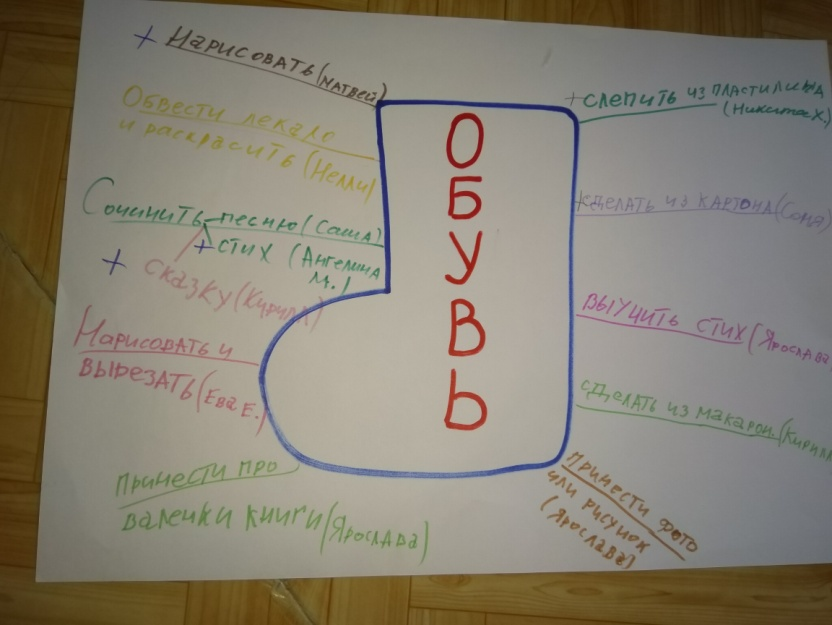 + Нарисовать (Матвей)
Обвести лекало
и раскрасить (Нелли)
Сочинить песню (Саша)
+ стих (Ангелина
М.)
+ сказку (Кирилл)
Нарисовать и
вырезать (Ева Е.)
Принести про
валенки книги (Ярослава)
ОБУВЬ
+ слепить из пластилина
(Никита Х.)
+ сделать из картона (Соня)
выучить стих (Ярослава
сделать из макарон. (Кирилл
принести фото
или рисунок
(Ярослава)